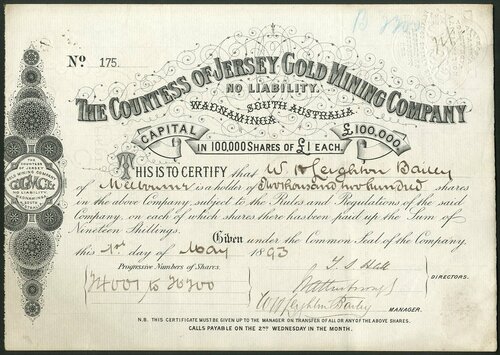 No. 175
THE COUNTESS OF JERSEY GOLD MINING COMPANY
NO LIABILITY.
WADNAMINGA SOUTH AUSTRALIA
CAPITAL £100,000.
IN 100,000 SHARES OF £1 EACH.
THIS IS TO CERTIFY that W H Leighton Bailey
of Melbourne is a holder of Two thousand two hundred shares
in the above Company, subject to the Rules and Regulations of the said
Company, on each of which shares there has been paid up the Sum of
Nineteen Shillings.
Given under the Common Seal of the Company
this 1st day of May 1893
Progressive Numbers of Shares.
DIRECTORS.
W H Leighton Bailey
MANAGER.
N.B. THIS CERTIFICATE MUST BE GIVEN UP TO THE MANAGER ON TRANSFER OF ALL OR ANY OF THE ABOVE SHARES.
CALLS PAYABLE ON THE 2ND WEDNESDAY IN THE MONTH.
THE COUNTESS OF JERSEY
GOLD MINING COMPANY
NO LIABILITY
WADNAMINGA
SOUTH